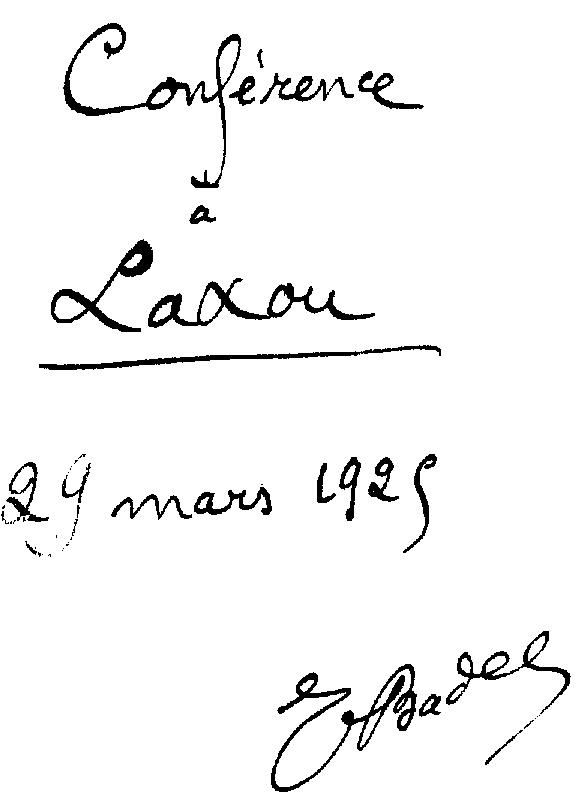 Conférence
à
Laxou
29 mars 1925
E Badel